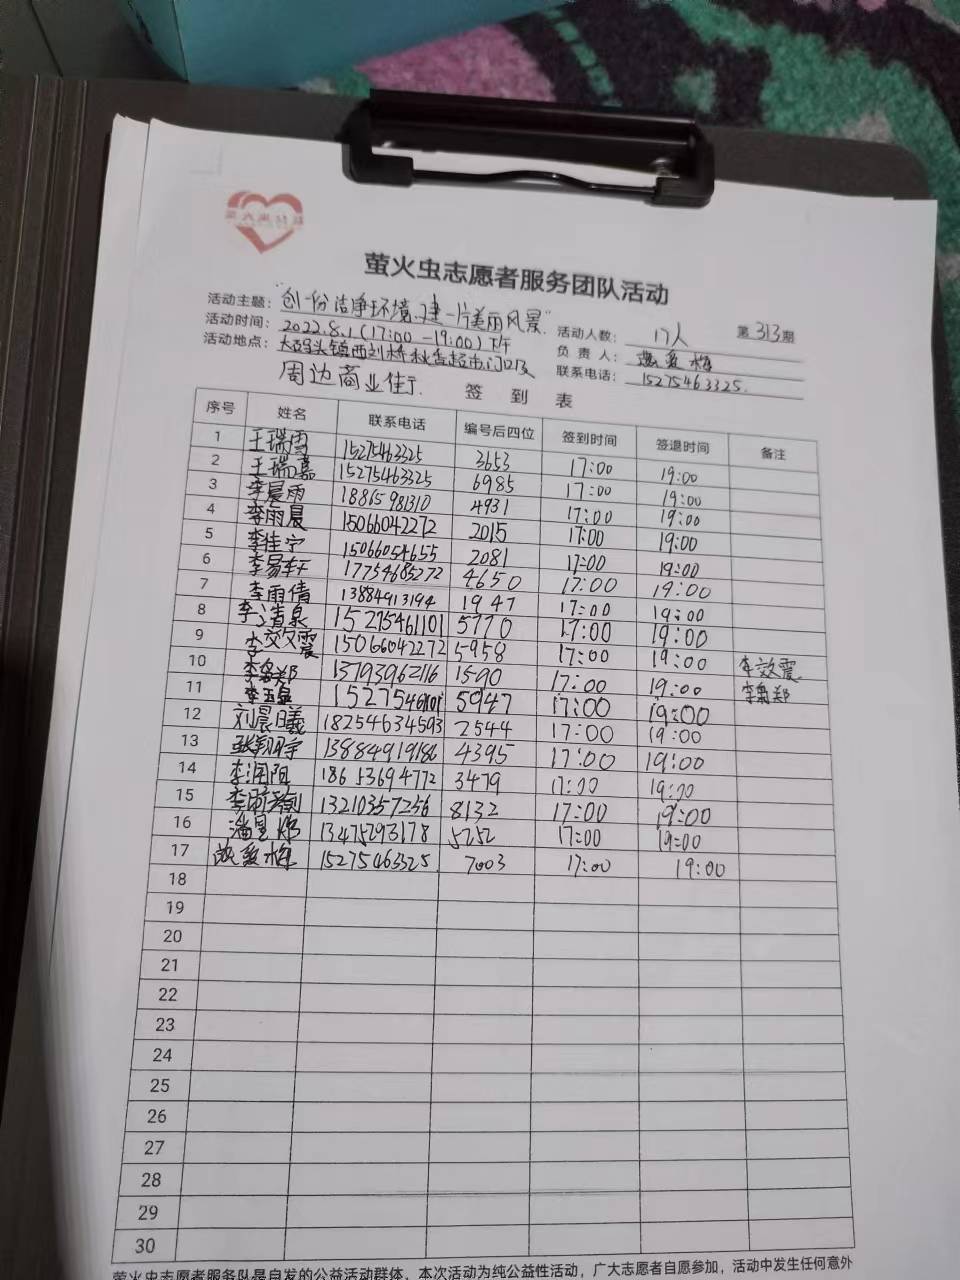 萤火虫志愿者服务团队活动
活动主题："创一份洁净环境,建一片美丽风景"
活动时间：2022.8.1(17:00-19:00)下午 活动人数：17人 第313期
活动地点：大码头镇西刘桥秋香超市门口及 负责人：
周边商业街 联系电话：15275463325.
签到表
序号 姓名 联系电话 编号后四位 签到时间 签退时间 备注
1 王瑞雪 15275463325 3653 17:00 19:00
2 王瑞嘉 15275463325 6985 17:00 19:00
3 李晨雨 18865981310 4931 17:00 19:00
4 李雨晨 15066042272 2015 17:00 19:00
5 李佳宁 15066054655 2081 17:00 19:00
6 李易轩 17754685272 4650 17:00 19:00
7 李雨倩 13884913194 1947 17:00 19:00
8 李清泉 15275461101 5770 17:00 19:00
9 李效震 15066042272 5958 17:00 19:00 李效震
10 13793962116 1590 17:00 19:00
11 李玉泉 15275461101 5947 17:00 19:00
12 刘晨曦 18254634593 2544 17:00 19:00
13 张翔宇 13884919186 4395 17:00 19:00
14 李润阳 18653694772 3479 17:00 19:00
15 13210357256 8132 17:00 19:00
16 13475293178 5252 17:00 19:00
17 15275463325. 7003 17:00 19:00
18
19
20
21
22
23
24
25
26
27
28
29
30
萤火虫志愿者服务队是自发的公益活动群体，本次活动为纯公益性活动，广大志愿者自愿参加，活动中发生任何意外